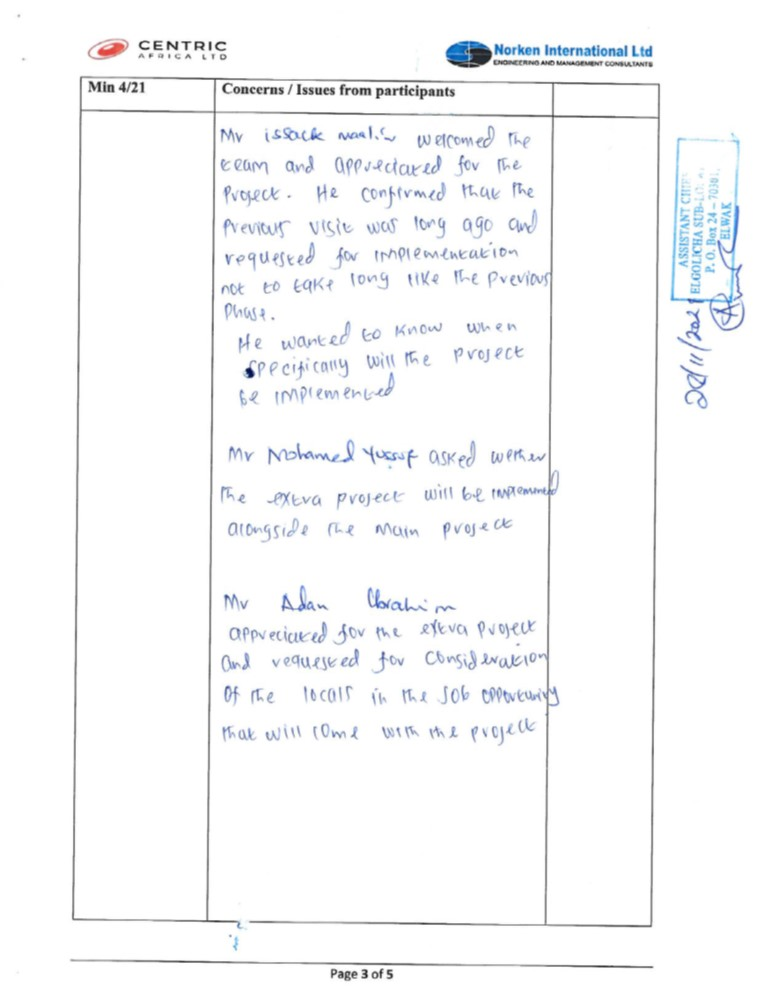 CENTRIC
AFRICA LTD
Norken International Ltd
ENGINEERING AND MANAGEMENT CONSULTANTS
Min 4/21
Concerns / Issues from participants
Mr issack maalim welcomed the
team and appreciated for the
Project. He confirmed that the
Previous visit was long ago and
requested for implementation
not to take long like the previous
Phase.
He wanted to know when
specifically will the project
be implemented
Mr Mohamed Yussuf asked wether
the extra project will be implemented
alongside the main project
Mr Adan Ibrahim
appreciated for the extra project
and requested for consideration
of the locals in the job opportunity
that will come with the project
ASSISTANT CHIEF
ELGOLICHA SUB-
P. O. Box 24 - 70301,
ELWAK
/11/2021
Page 3 of 5